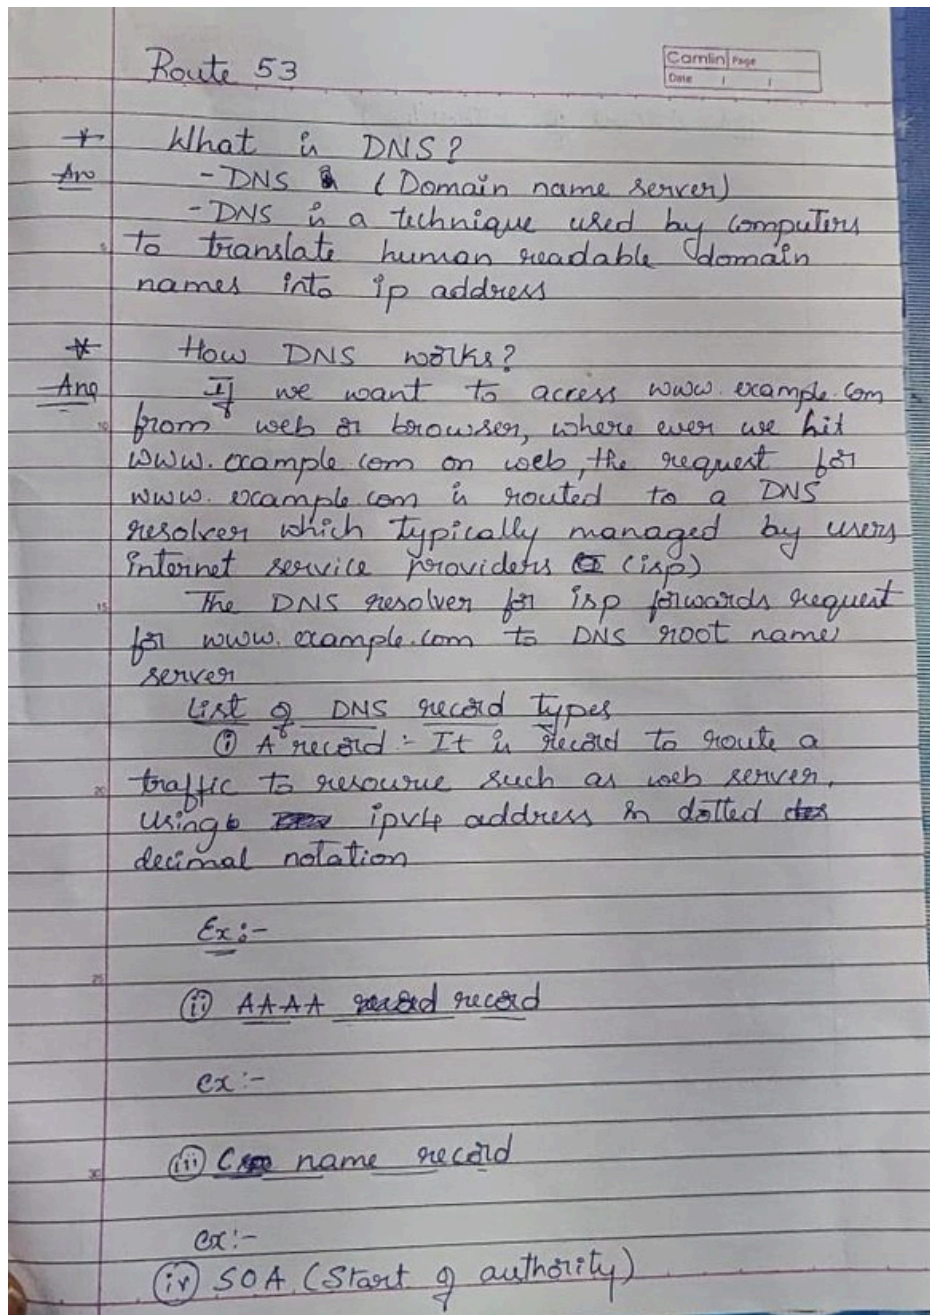 Camlin Page
Date / /
Route 53
* What is DNS?
Ans - DNS (Domain name server)
- DNS is a technique used by computers
to translate human readable domain
names into ip address
* How DNS works?
Ans If we want to access www.example.com
from web or browser, where ever we hit
www.example.com on web, the request for
www.example.com is routed to a DNS
resolver which typically managed by users
internet service providers (isp)
The DNS resolver for isp forwards request
for www.example.com to DNS root name
server
List of DNS record types
(i) A record :- It is record to route a
traffic to resource such as web server,
using ipv4 address in dotted
decimal notation
Ex :-
(ii) AAAA record
ex :-
(iii) C name record
ex :-
(iv) SOA (Start of authority)